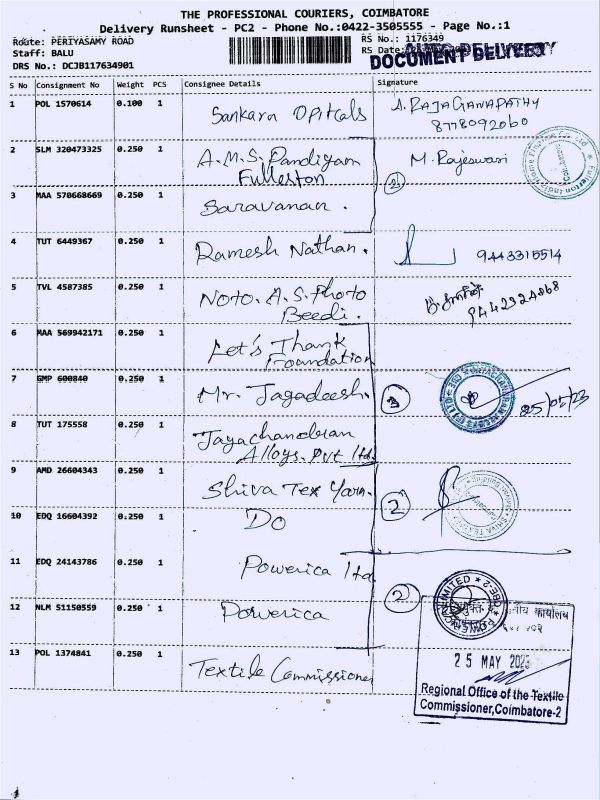 THE PROFESSIONAL COURIERS, COIMBATORE
Delivery Runsheet - PC2 - Phone No.:0422-3505555 - Page No.:1
Route: PERIYASAMY ROAD
RS No.: 1176349
Staff: BALU
RS Date:
DOCUMENT DELIVERY
DRS No.: DCJB117634901
S No Consignment No Weight PCS Consignee Details Signature
1 POL 1570614 0.100 1 Sankara Opitcals A. RAJA GANAPATHY
8778092060
2 SLM 320473325 0.250 1 A.M.S. Pandiyan M. Rajeswari
Fullerton
2
3 MAA 570668669 0.250 1 Saravanan.
4 TUT 6449367 0.250 1 Ramesh Nathan. 9443315514
5 TVL 4587385 0.250 1 Noto. A.S. Photo
Beedi. 9442324868
6 MAA 569942171 0.250 1 Let's Thank
Foundation
7 GMP 600840 0.250 1 Mr. Jagadeesh. 3
25/05/23
8 TUT 175558 0.250 1 Jayachandran
Alloys. Pvt ltd.
9 AMD 26604343 0.250 1 Shiva Tex Yarn.
2
10 EDQ 16604392 0.250 1 Do
11 EDQ 24143786 0.250 1 Powerica ltd
2
12 NLM 51150559 0.250 1 Powerica
13 POL 1374841 0.250 1 Textile Commissioner
25 MAY 2023
Regional Office of the Textile
Commissioner, Coimbatore-2